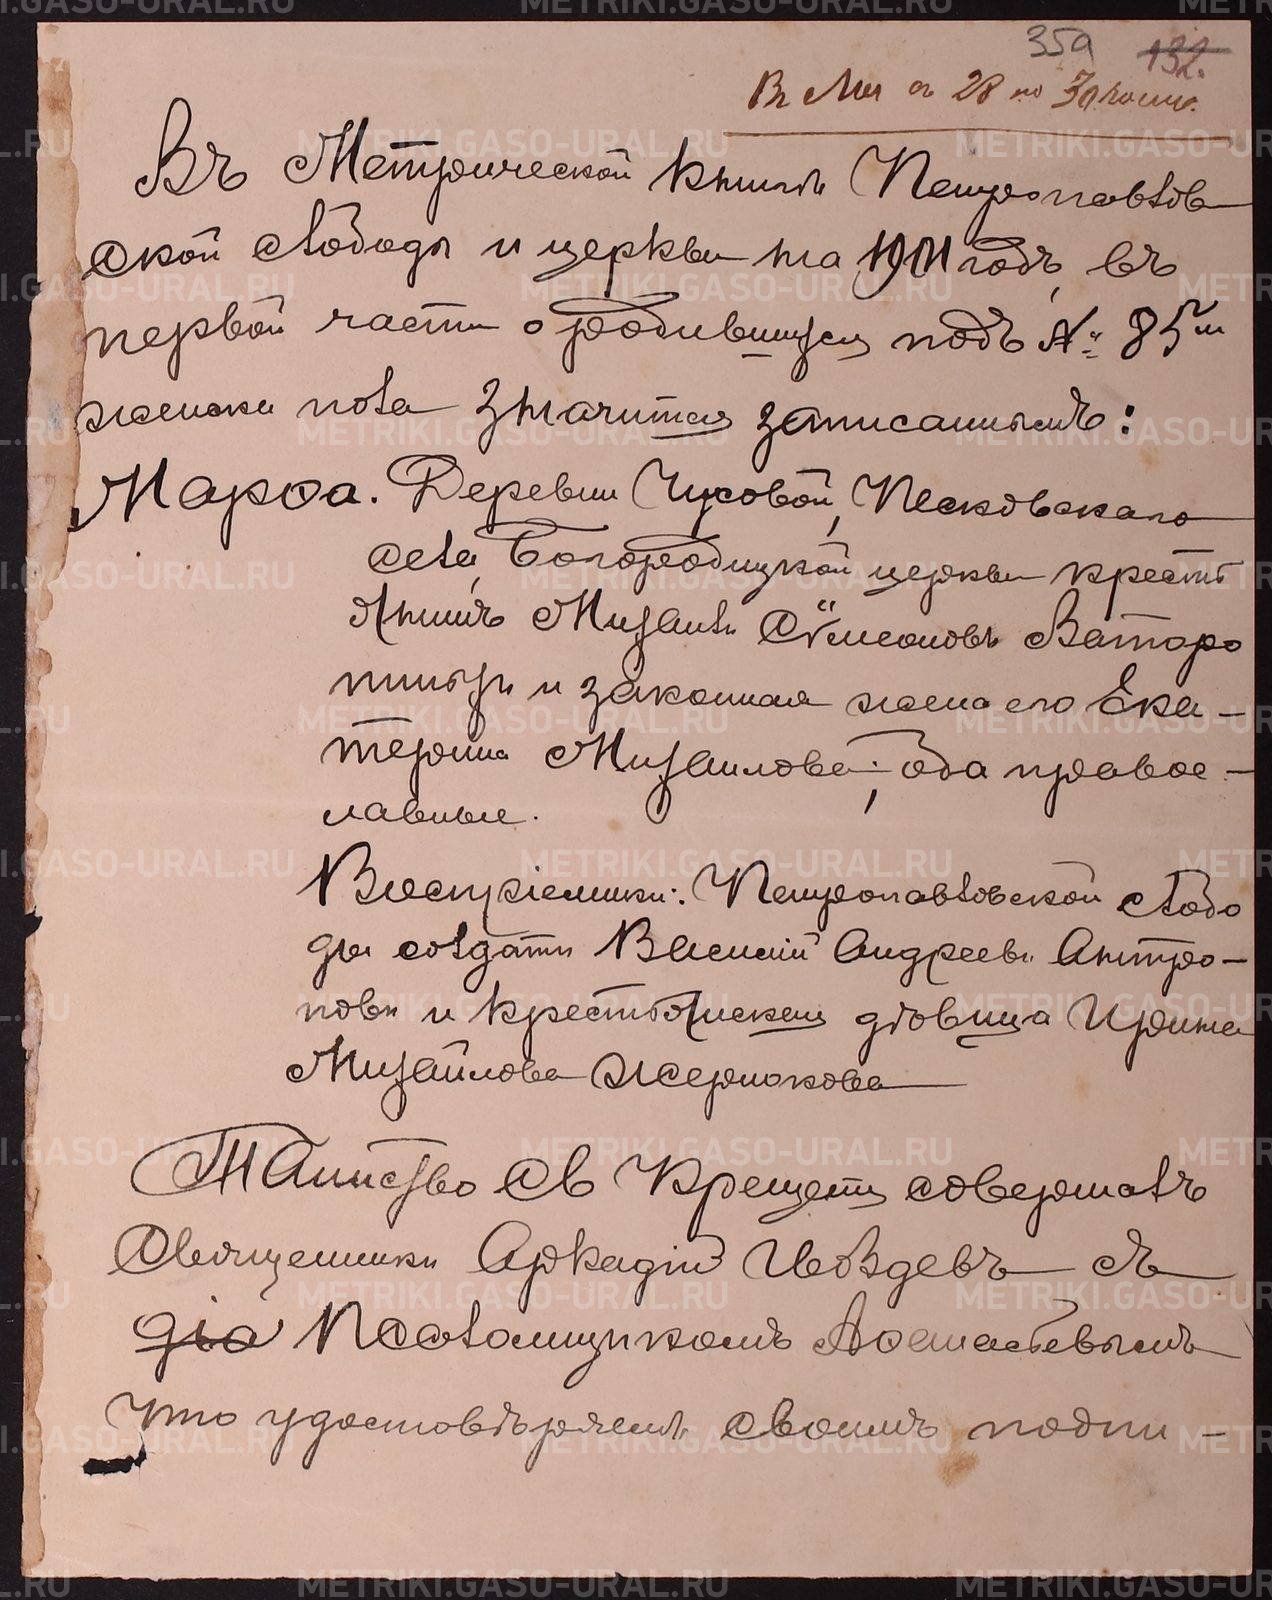 35а 132.
Въ Метрической книгѣ Петропавлов
ской слободы и церкви на 1911 годъ, въ
первой части о родившихся подъ № 85мъ
женска пола значится записаннымъ:
Марѳа. Деревни Чусовой, Песковскаго
села, Богородицкой церкви кресть
янинъ Михаилъ Сѵмеоновъ Ваторо
пинъ и законная жена его Ека-
терина Михаилова; оба правос-
лавные.
Воспріемники: Петропавловской слобо
ды солдатъ Василій Андреевъ Антро-
повъ и крестьянская дѣвица Ирина
Михайлова Жернокова
Таинство Св Крещенія совершалъ
Священникъ Аркадій съ
діа Псаломщикомъ
Что удостовѣряемъ своимъ подпи-